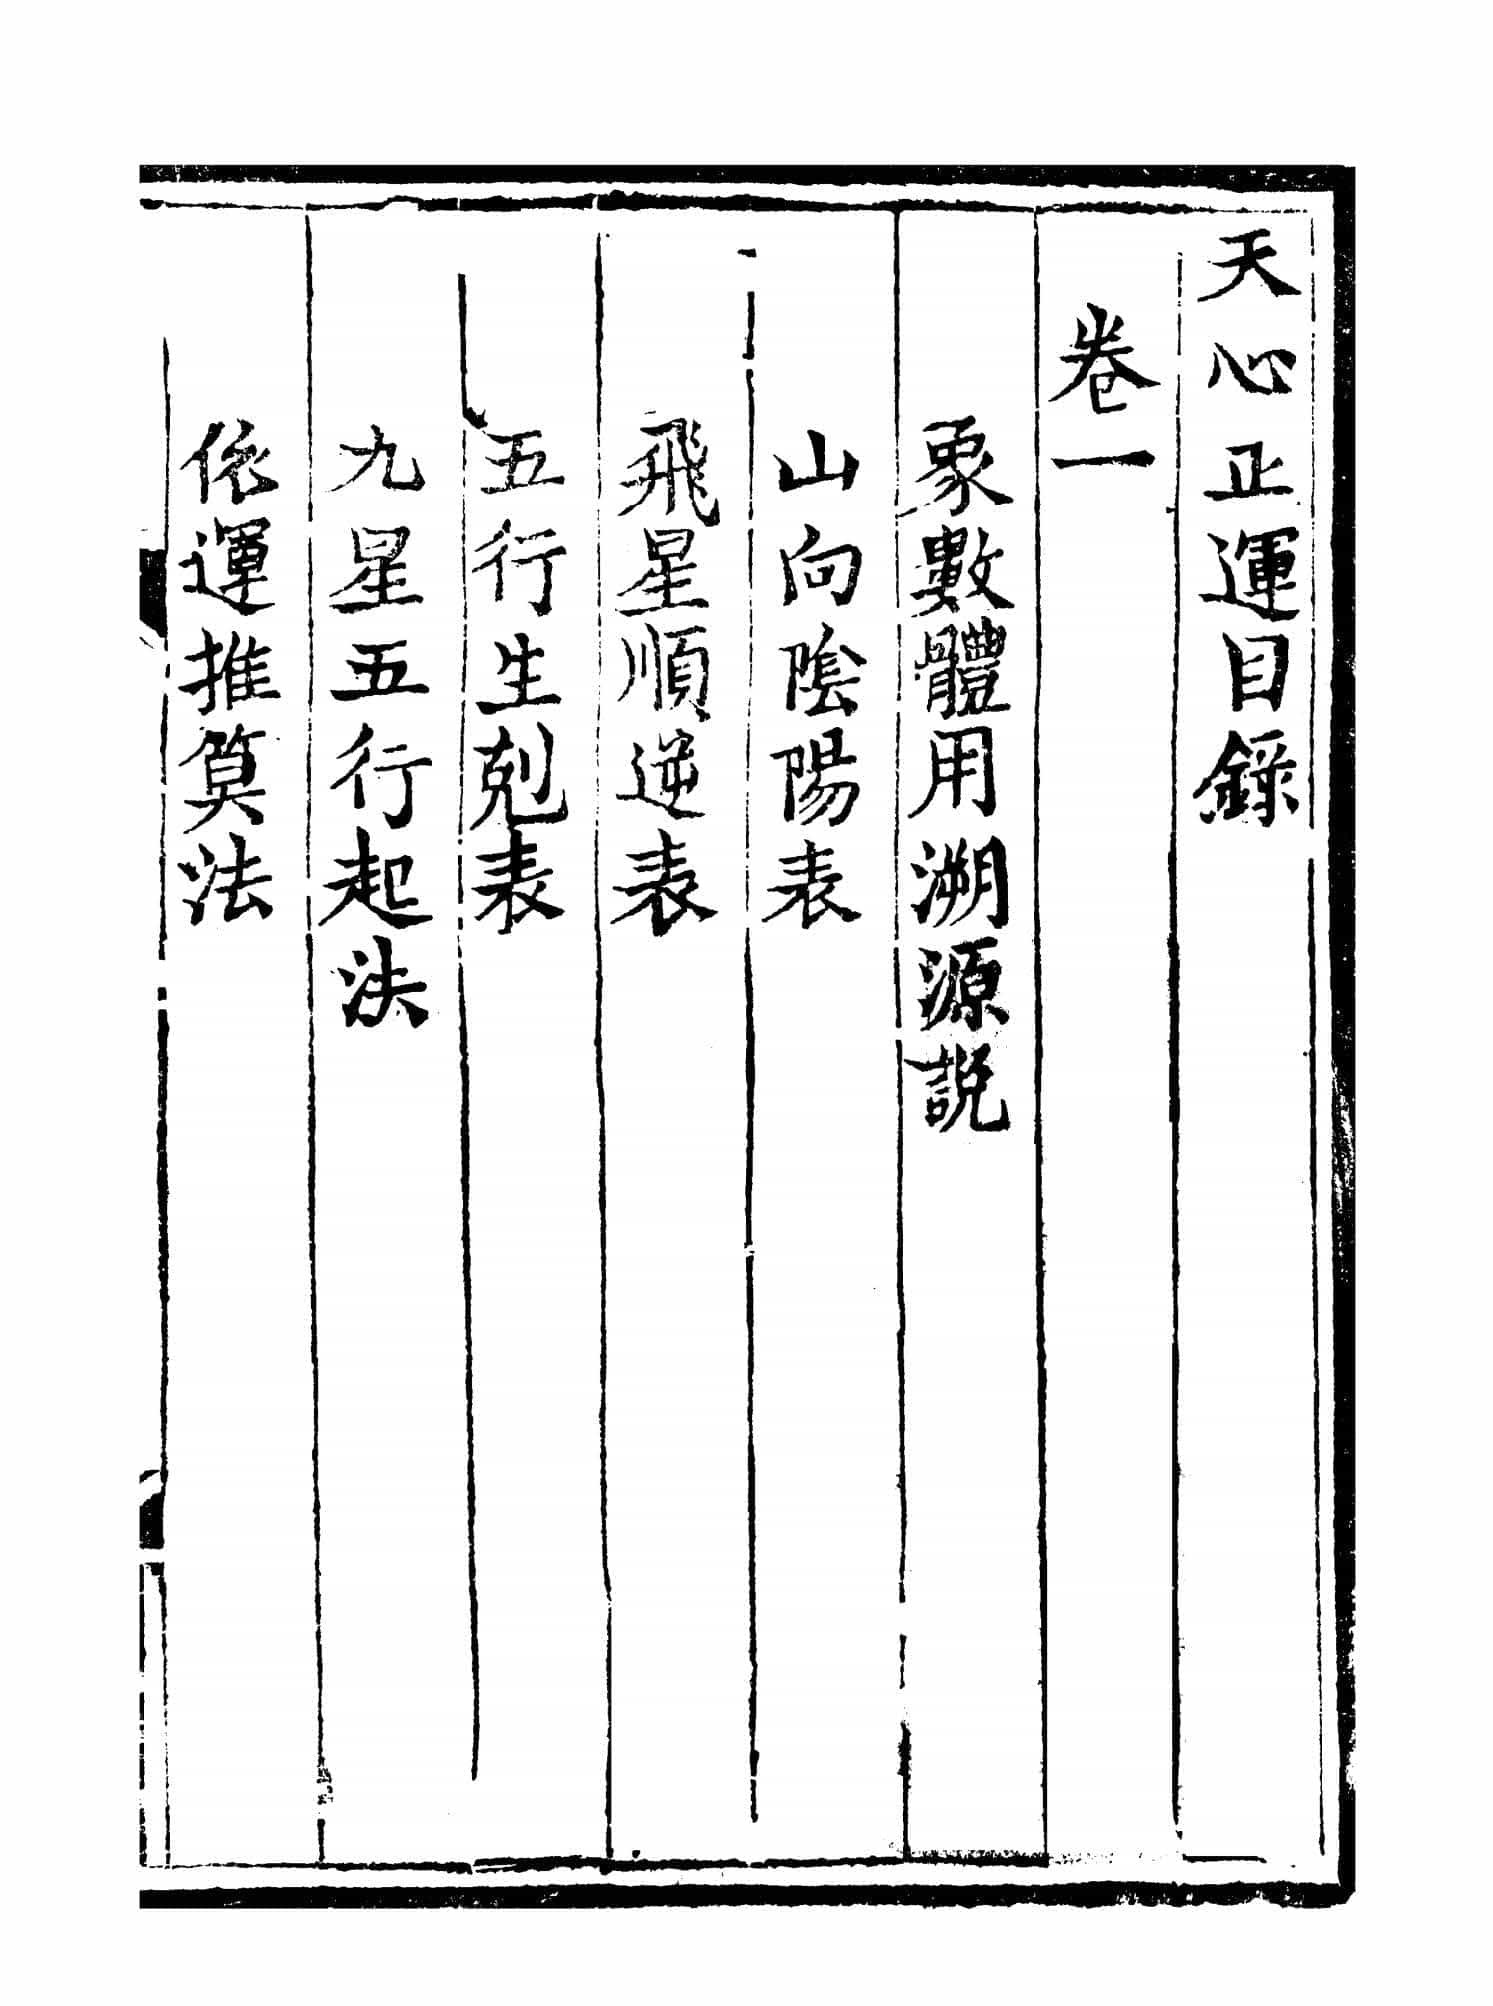 天心正運目錄
卷一
象數體用溯源説
山向陰陽表
飛星順逆表
五行生剋表
九星五行起決
依運推算法